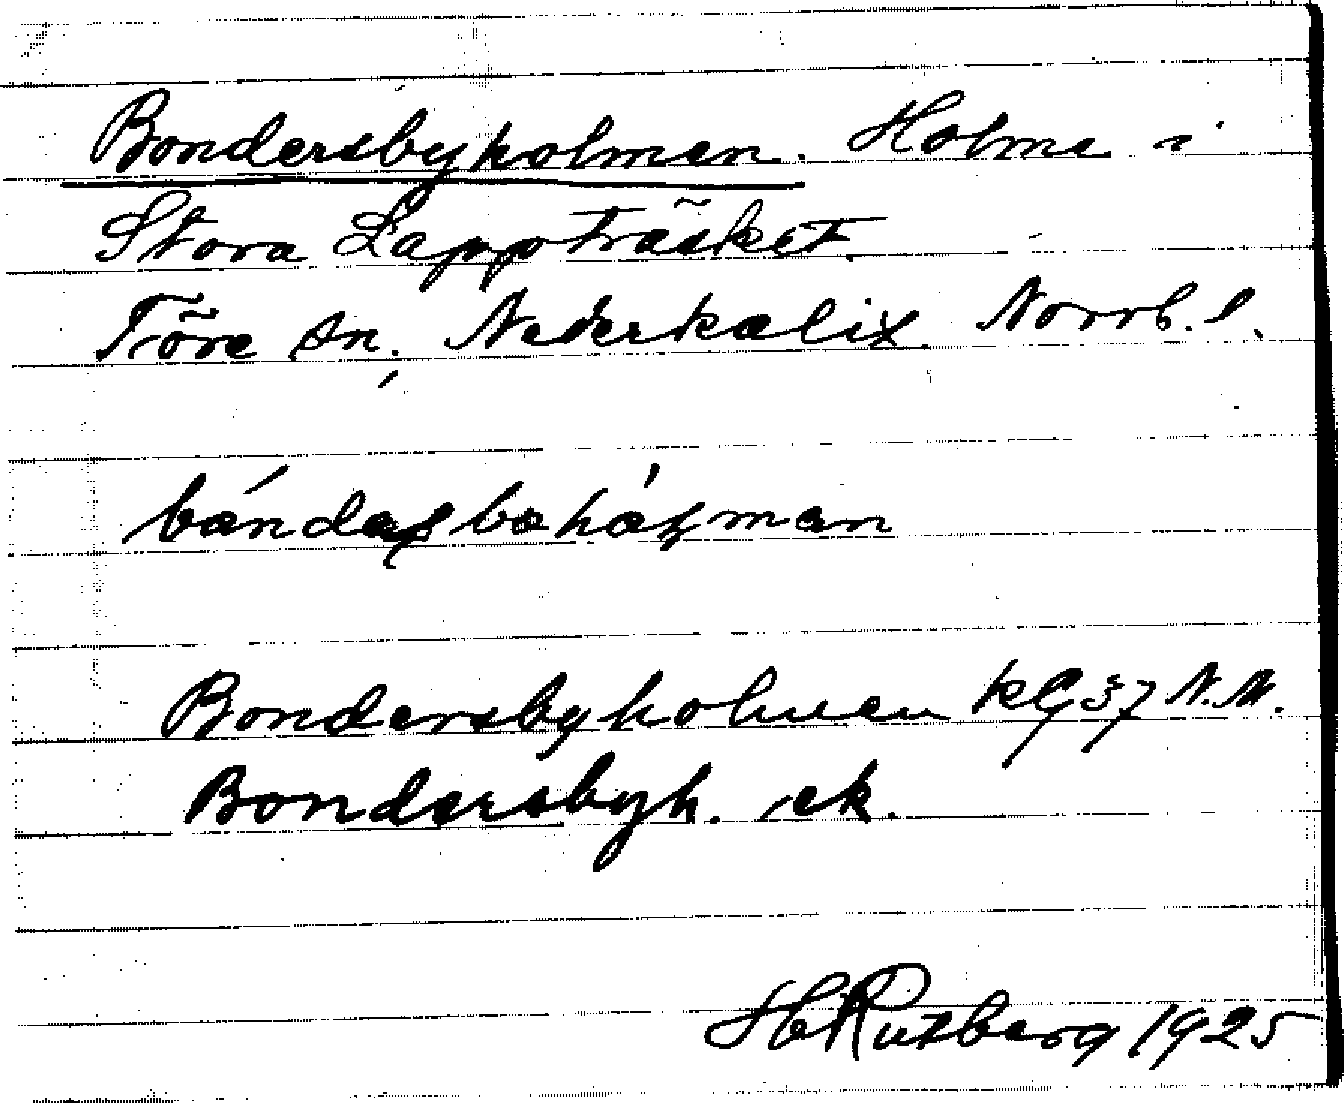 Bondersbyholmen. Holme i
Stora Lappträsket.
Töre sn. Nederkalix Norrb. l.
Bondersbyholmen kG 37 N.M.
Bondersbyh. ek.
H Rutberg 1925